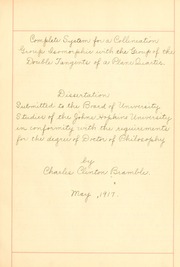 Complete System for a Collineation
Group Isomorphic with the Group of the
Double Tangents of a Plane Quartic
Dissertation
Submitted to the Board of University
Studies of the Johns Hopkins University
in conformity with the requirements
for the degree of Doctor of Philosophy
by
Charles Clinton Bramble.
May, 1917.